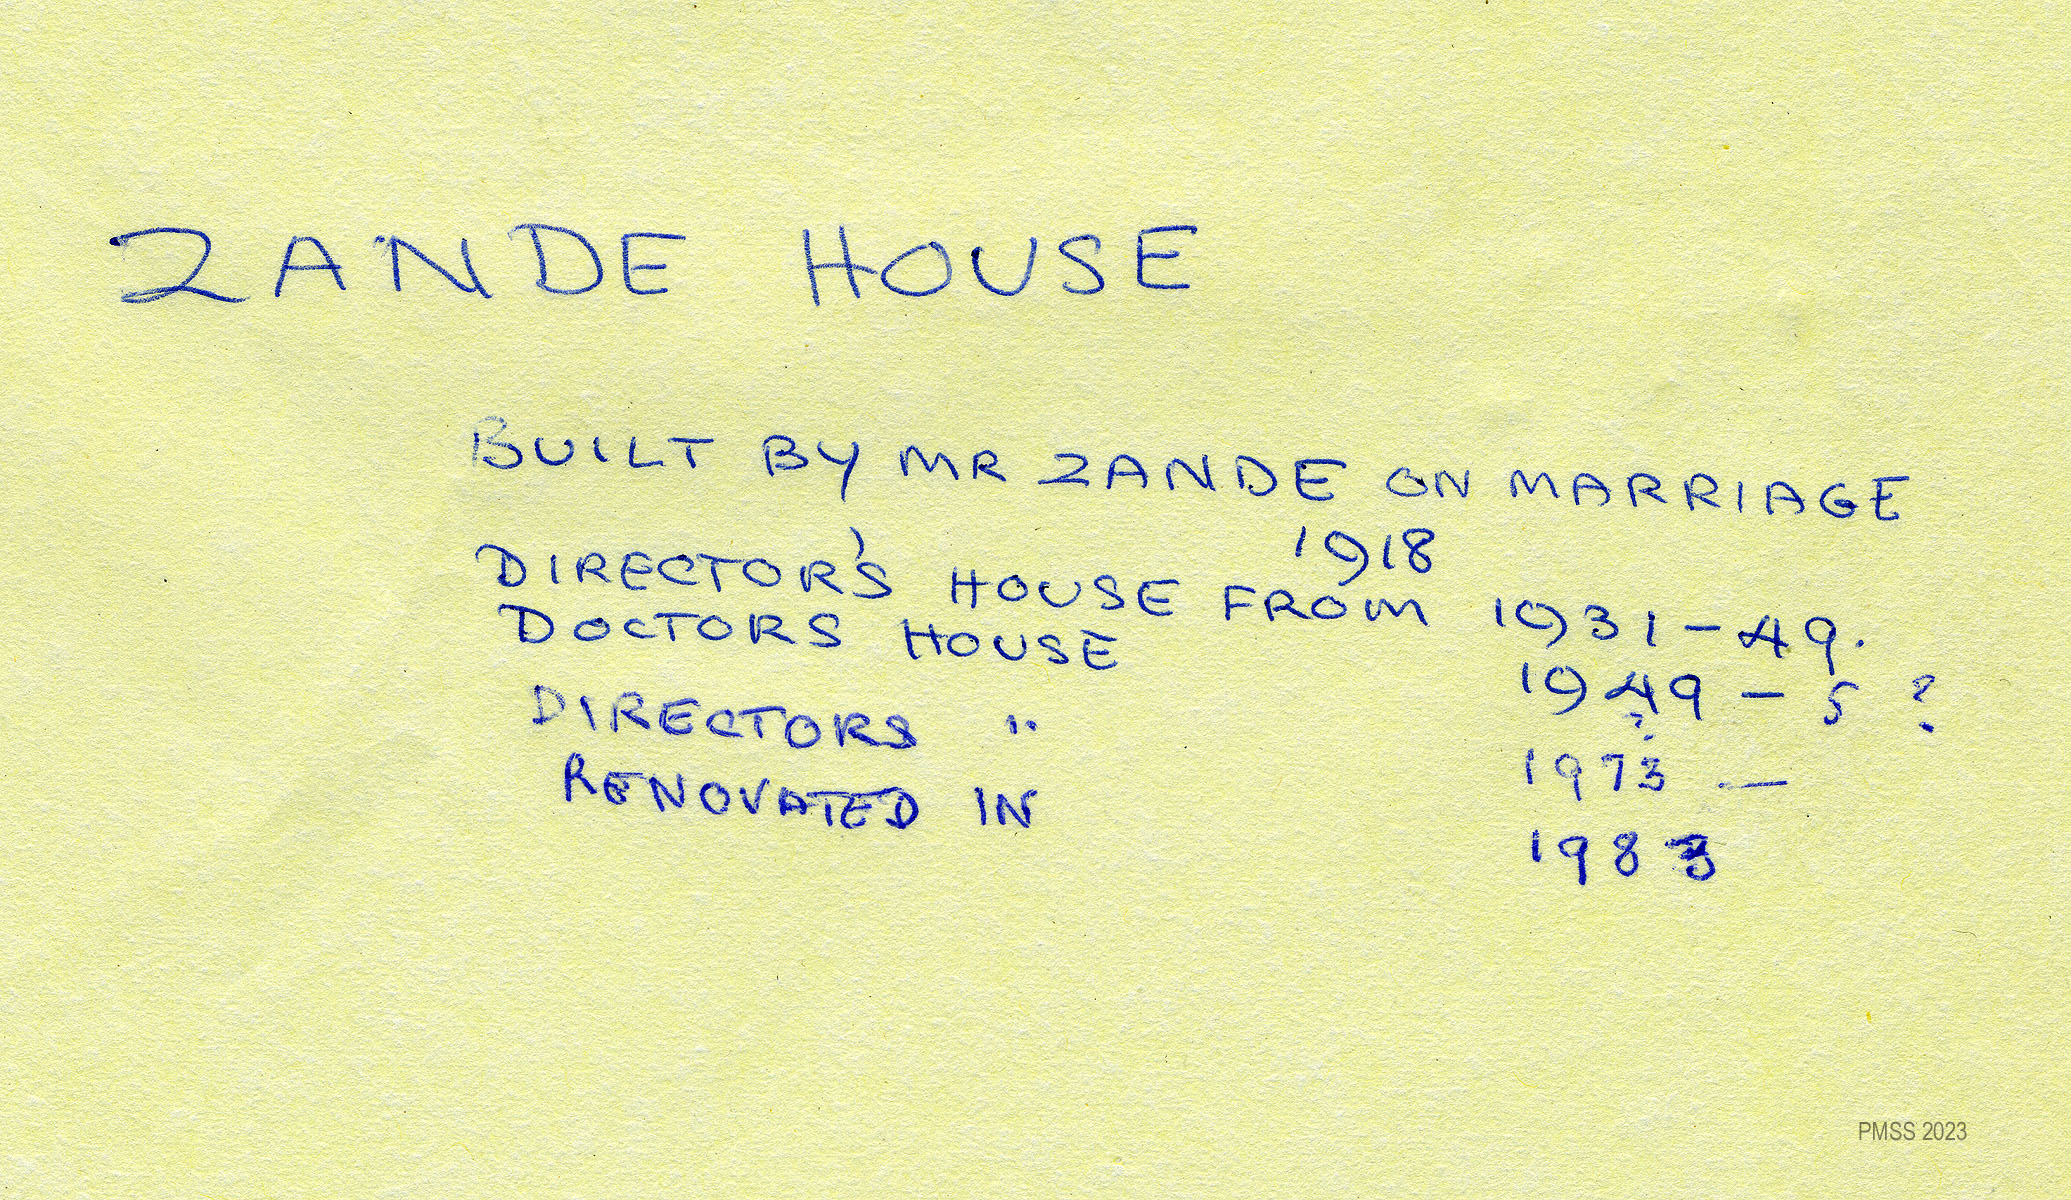 ZANDE HOUSE
BUILT BY MR ZANDE ON MARRIAGE
1918
DIRECTOR'S HOUSE FROM 1931-49.
DOCTORS HOUSE 1949 - 5 ?
DIRECTORS " 1973 —
RENOVATED IN 1983
PMSS 2023